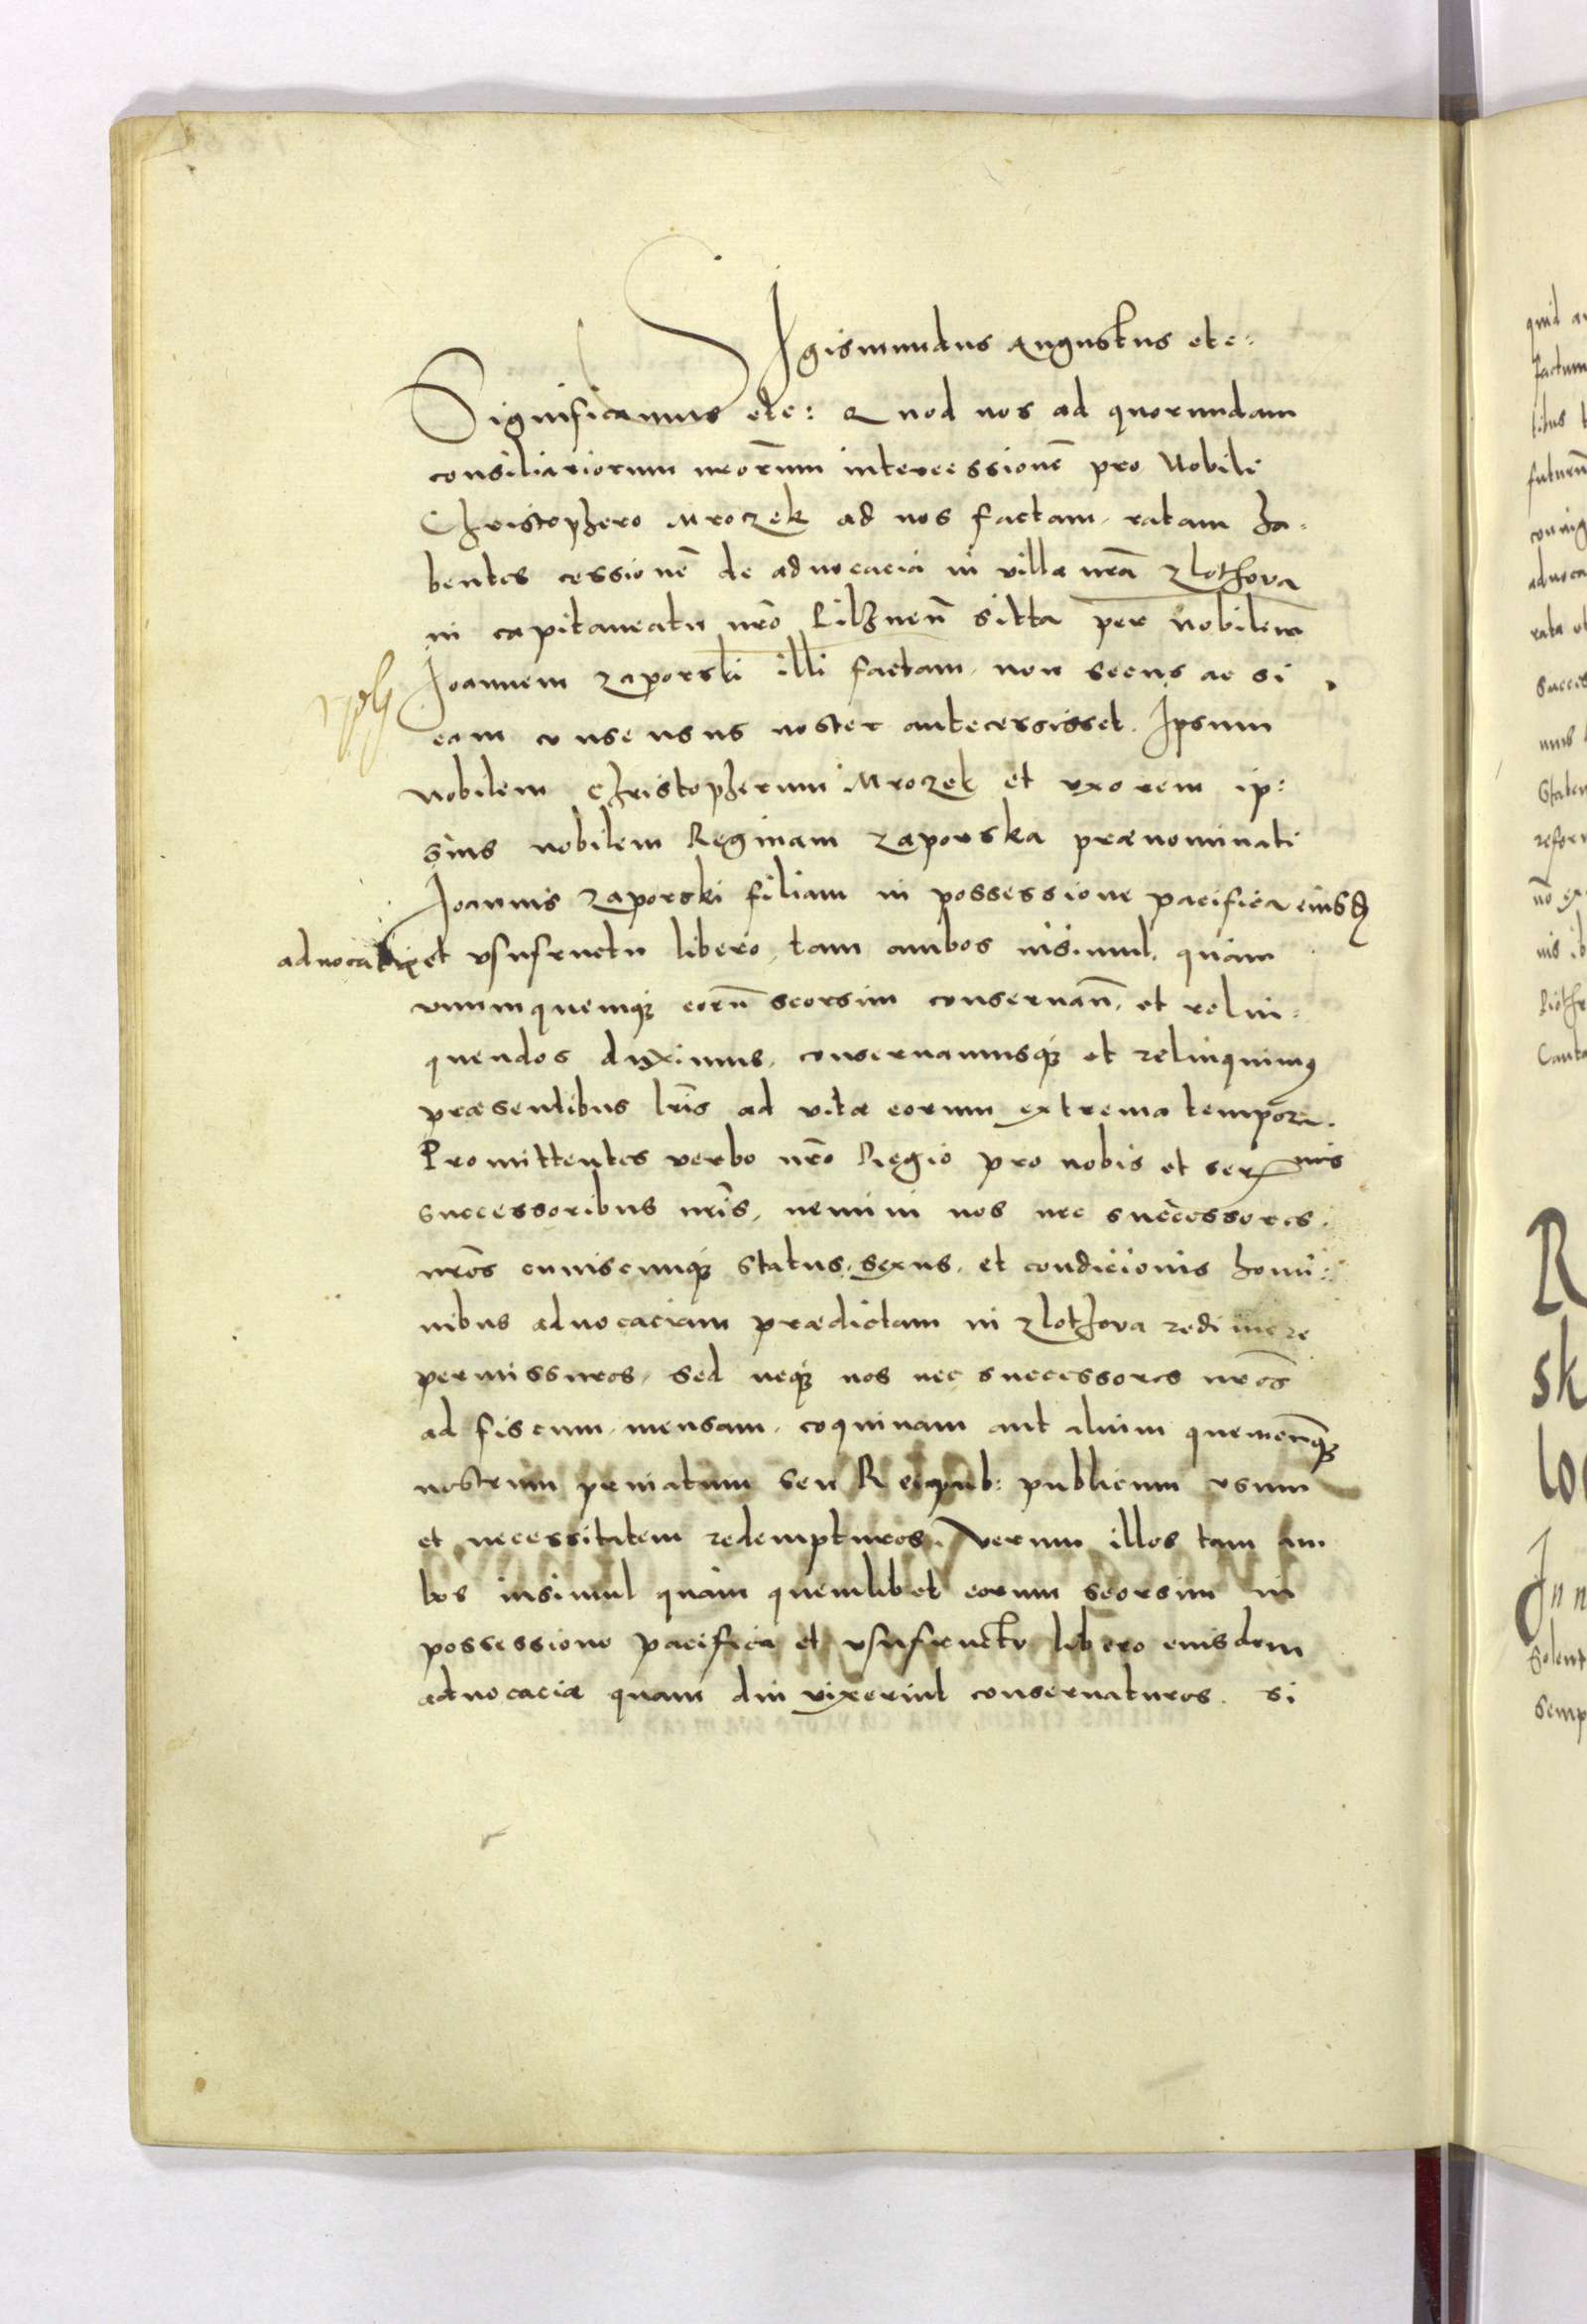 Sigismundus Augustus etc:
Significamus etc: Quod nos ad quorundam
consiliariorum nrõrum intercessionẽ pro Nobili
Christophero Mroczek ad nos factam, ratam ha-
bentes cessionẽ de advocacia in villa nrã Zlothova
in capitaneatu nrõ Pilznen̄ sitta per Nobilem
Joannem Zaporski illi factam, non secus ac si
eam consensus noster antecessisset. Ipsum
Nobilem Christopherum Mroczek et uxorem ip:
sius nobilem Reginam Zaporska prænominati
Joannis Zaporski filiam in possessione pacifica eiusdē
advocatiæ et usufructu libero, tam ambos insimul, quàm
unumquemq; eorũ seorsim conservan̄, et relin:
quendos duximus, conservamusq; et relinquimus
præsentibus lrĩs ad vitæ eorum extrema tempora.
Promittentes verbo nrõ Regio pro nobis et Serenmis
successoribus nrĩs, nemini nos nec successores
nrõs cuiuscunq; status, sexus, et condicionis homi:
nibus advocaciam prædictam in Zlothova redimere
permissuros, sed neq; nos nec successores nrõs
ad fiscum, mensam, coquinam aut alium quemcunq;
nostrum privatum seu Reipub: publicum usum
et necessitatem redempturos. Verum illos tam am
bos insimul quàm quemlibet eorum seorsim in
possessione pacifica et usufructu libero eiusdem
advocaciæ quam diu vixerint conservaturos. Si